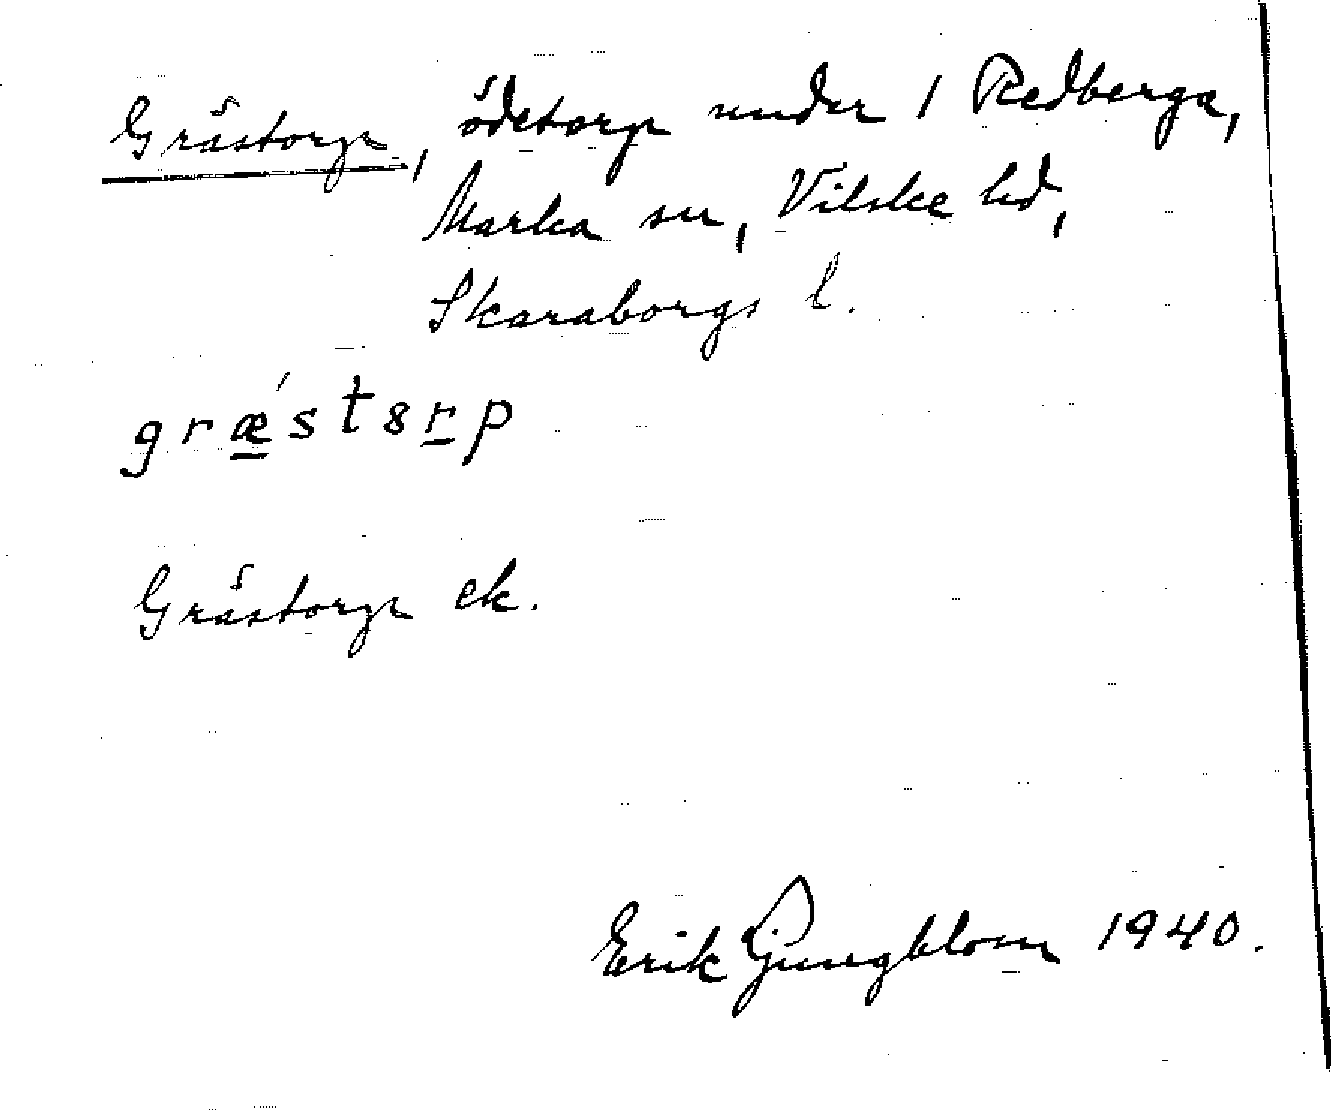 Gråstorp, ödetorp under 1 Redberga,
Marka sn, Vilske hd,
Skaraborgs l.
grǽ̲st8r̲p
Gråstorp ek.
Erik Ljungblom 1940.